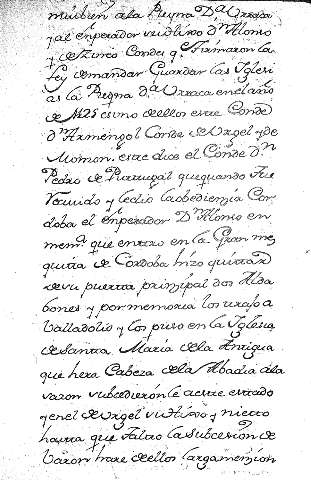 mugien ala Reyna D.ª Urraca
y al Enperador su hixo d.n Alonso
y de cinco Condes q.e firmaron la
ley de mandar Guardar las Iglesi
as la Reyna d.ª Urraca en el año
es uno dellos este Conde
d.n Armengol Conde de Urgel y de
Momon. este dice el Conde d.n
Pedro de Purtugal que quando fue
Vencido y le dio la obedienzia Cor
doba el Enperador D.n Alonso en
mem.ª que entrava en la Gran mez
quita de Cordoba hizo quitar
de su puerta prinzipal dos Alda
bones y por memoria los traxo a
Valladolid y los puso en la Iglesia
de Santa Maria de la Antigua
que hera Cabeza de la Abadia a la
vazon subcedieron le a este estado
y en el de Urgel su hixo y nietto
hasta que falto la subcesion de
Varon haze dellos larga menzion